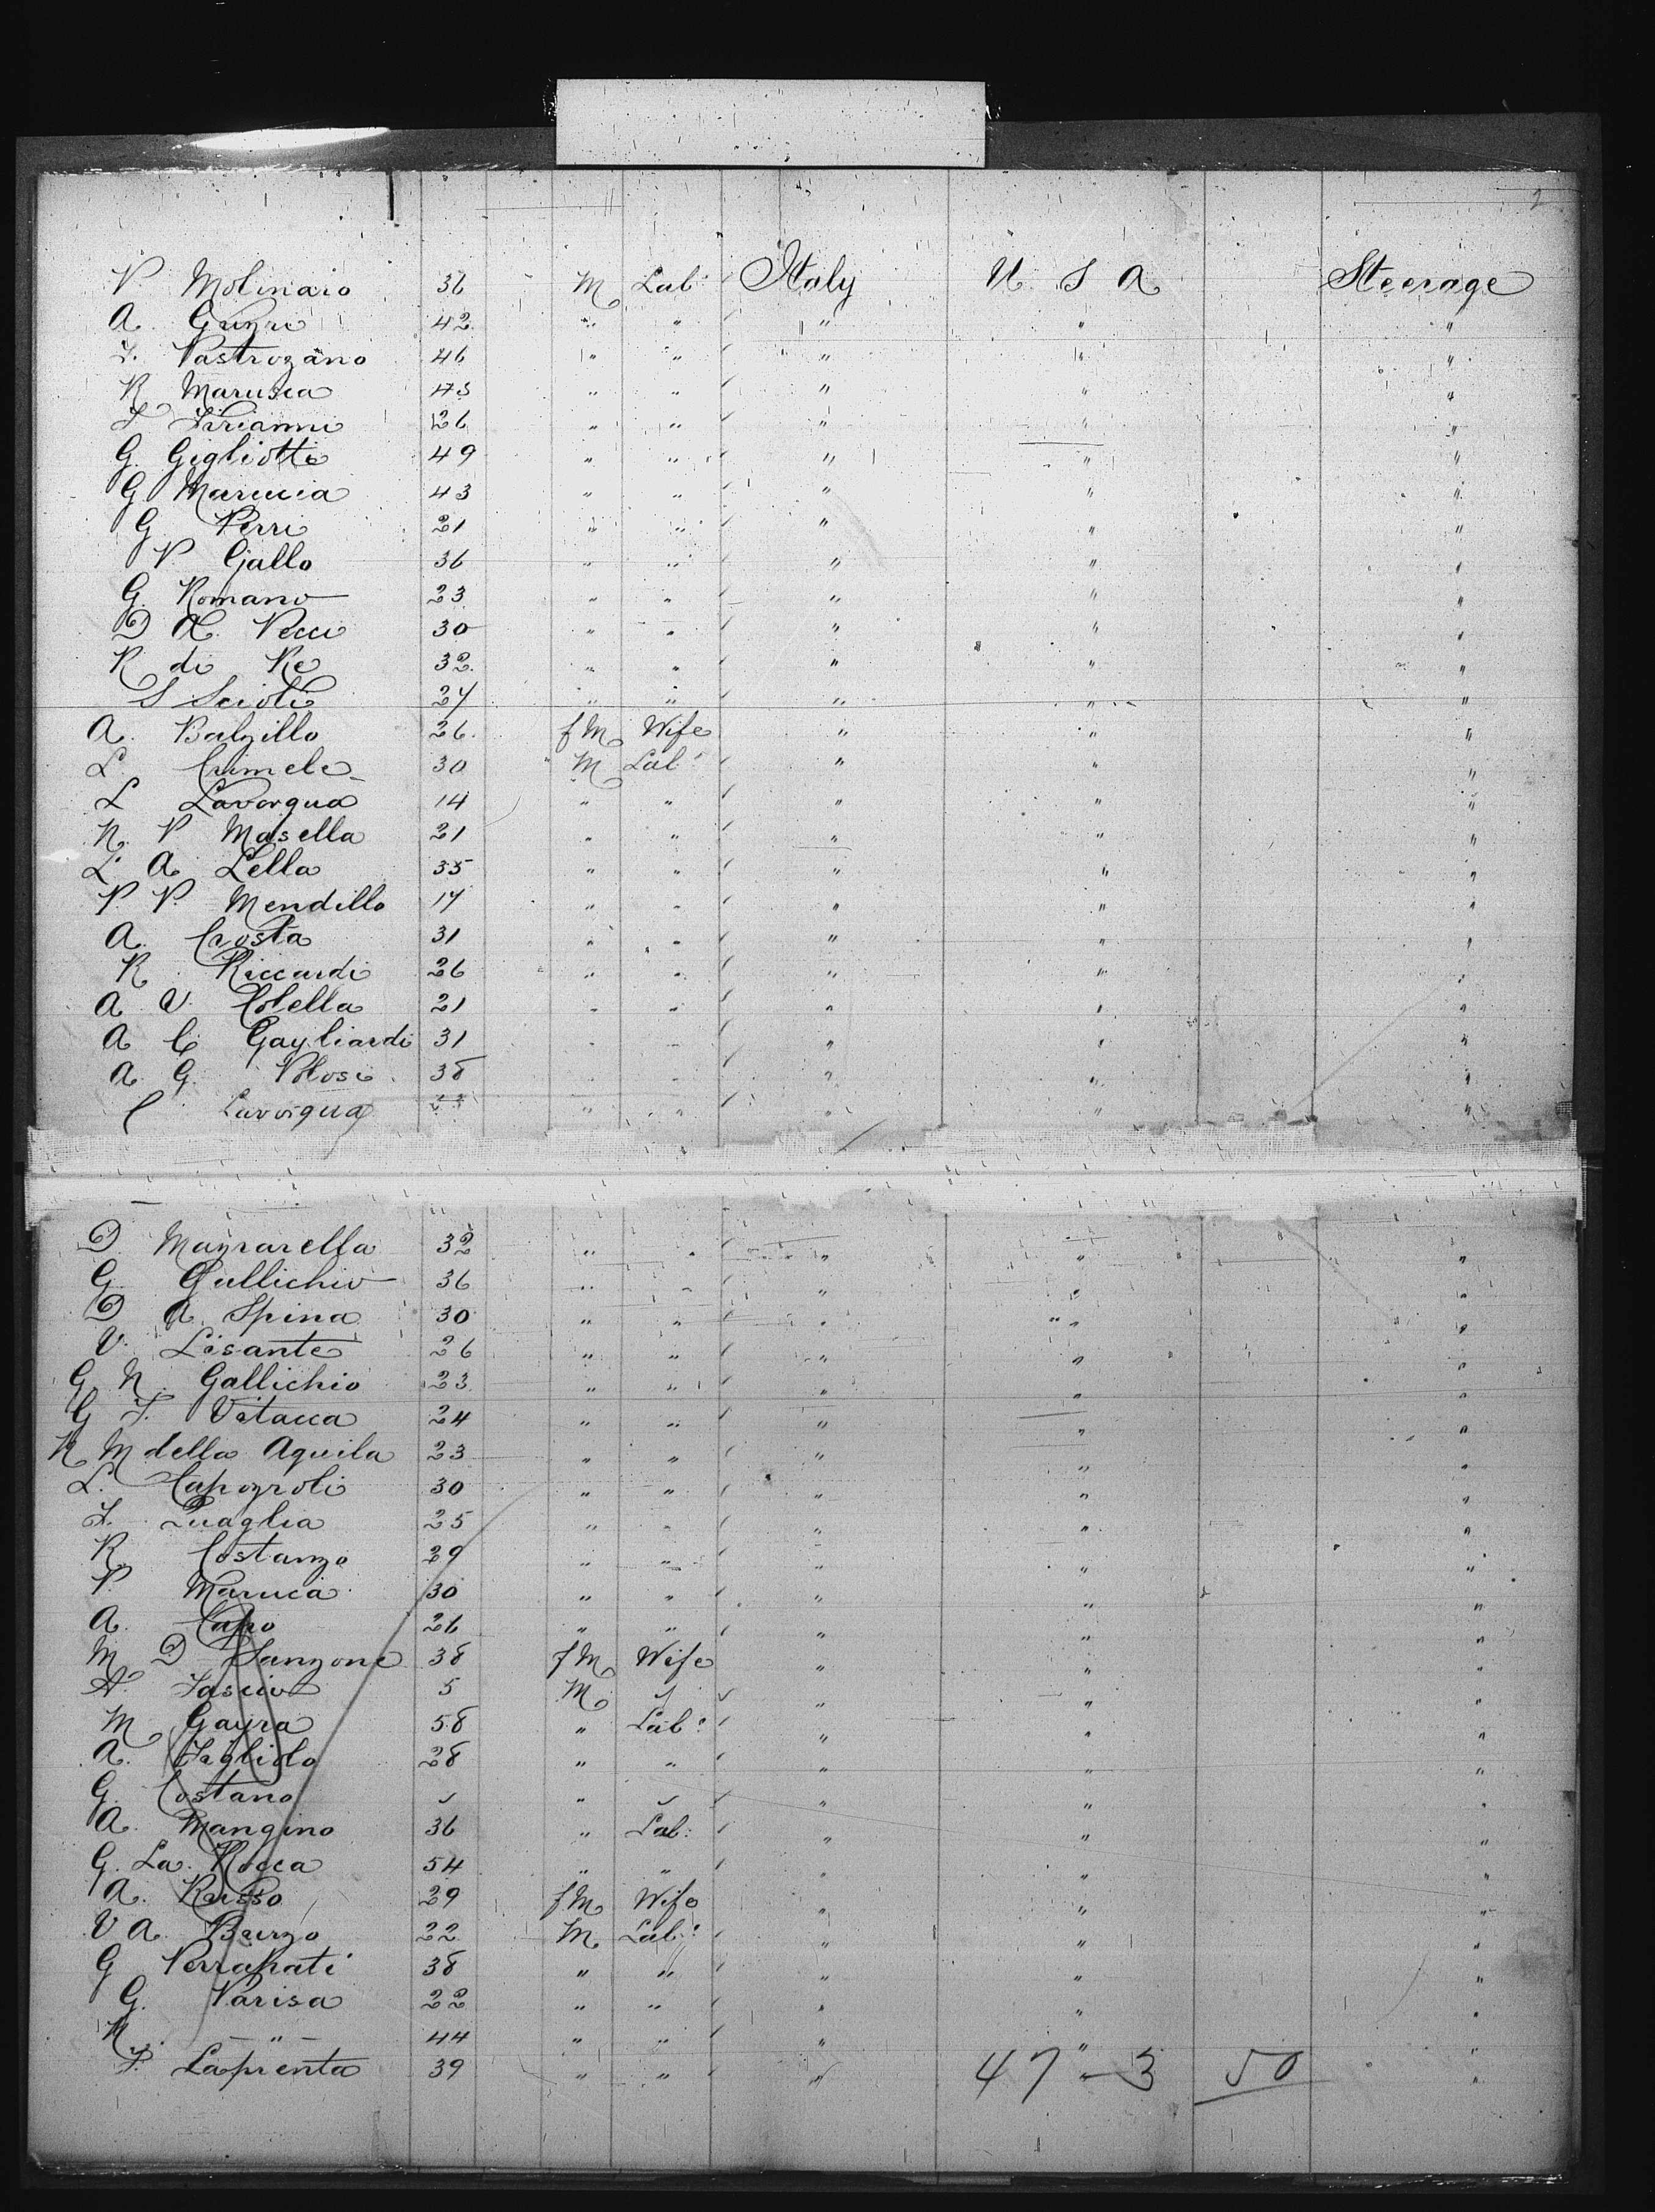 2
P Molinaro 36 M Lab: Italy U S A Steerage
A. Grizri 42 " " " " "
F. Pastrozano 46 " " " " "
R Marusca 43 " " " " "
F 26 " " " " "
G. Gigliotti 49 " " " " "
G Marucia 43 " " " " "
G Perri 21 " " " " "
P Gallo 36 " " " " "
G. Romano 23 " " " " "
D A. Pecci 30 " " " " "
R di Re 32 " " " " "
S Scioli 27 " " " " "
A. Balzillo 26 fM Wife " " "
L. Crimele 30 M Lab: " " "
L Lavorgna 14 " " " " "
N. P Masella 21 " " " " "
L. A. Lella 35 " " " " "
P. P. Mendillo 17 " " " " "
A. Crosta 31 " " " " "
R. Riccardi 26 " " " " "
A V. Colella 21 " " " " "
A C Gagliardi 31 " " " " "
A. G. Polosi 38 " " " " "
C Lavorgna " " " " "
D Mazzarella 32 " " " " "
G. Gullichio 36 " " " " "
D A. Spina 30 " " " " "
V. Lisante 26 " " " " "
G N. Gallichio 23 " " " " "
G F. Vitacca 24 " " " " "
R M della Aquila 23 " " " " "
L. Capozroli 30 " " " " "
F. Quaglia 25 " " " " "
R. Costanzo 29 " " " " "
P. Maruca 30 " " " " "
A. Capo 26 " " " " "
M D Sanzone 38 fM Wife " " "
A. Fascio 5 M " " "
M Gayra 58 " Lab: " " "
A. Faglido 28 " " " " "
G. Costano " " " "
A. Mangino 36 " Lab: " " "
G. La Rocca 54 " " " " "
A. Russo 29 fM Wife " " "
V A. Burzo 22 M Lab: " " "
G Perrapati 38 " " " " "
G. Parisa 22 " " " " "
N. — " — 44 " " " " "
F. Laprenta 39 " " " " "
47 - 3 50